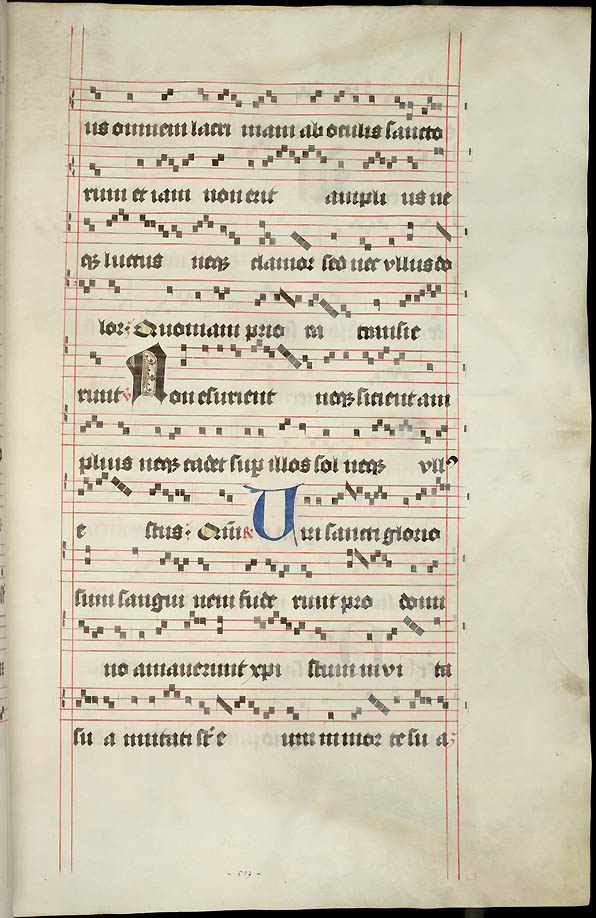 us omnem lacri mam ab oculis sancto
rum et iam non erit ampli us ne
qꝫ luctus neqꝫ clamor sed nec vllus do
lorꝫ Quoniam prio ra transie
runt ℣ Non esurient neqꝫ sitient am
plius neqꝫ cadet suꝑ illos sol neqꝫ vllꝰ
e stus. Qm̅ ℟ Uiri sancti glorio
sum sangui nem fude runt pro domi
no amauerunt xpi stum in vi ta
su a imitati st̅ e um in mor te su a